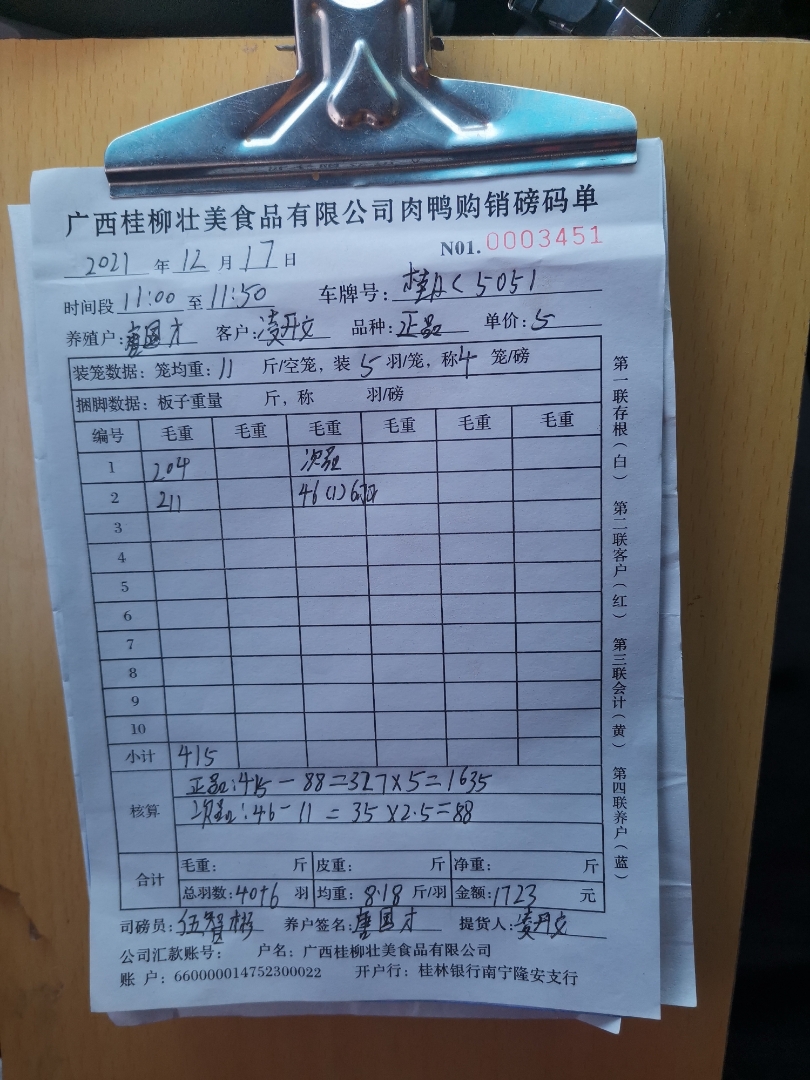 广西桂柳壮美食品有限公司肉鸭购销磅码单
N01. 0003451
2021 年 12 月 17 日
时间段 11:00 至 11:50 车牌号: 桂A 5051
养殖户: 唐国才 客户: 凌丹文 品种: 正品 单价: 5
装笼数据: 笼均重: 11 斤/空笼, 装 5 羽/笼, 称 4 笼/磅
捆脚数据: 板子重量 斤, 称 羽/磅
编号 毛重 毛重 毛重 毛重 毛重 毛重
1 204 次品
2 211 46 (1) 6羽
3
4
5
6
7
8
9
10
小计 415
核算
正品: 415 - 88 = 327 × 5 = 1635
次品: 46 - 11 = 35 × 2.5 = 88
合计
毛重: 斤 皮重: 斤 净重: 斤
总羽数: 40+6 羽 均重: 8.18 斤/羽 金额: 1723 元
司磅员: 伍智彬 养户签名: 唐国才 提货人: 凌丹文
公司汇款账号: 户名: 广西桂柳壮美食品有限公司
账 户: 660000014752300022 开户行: 桂林银行南宁隆安支行
第一联存根(白) 第二联客户(红) 第三联会计(黄) 第四联养户(蓝)